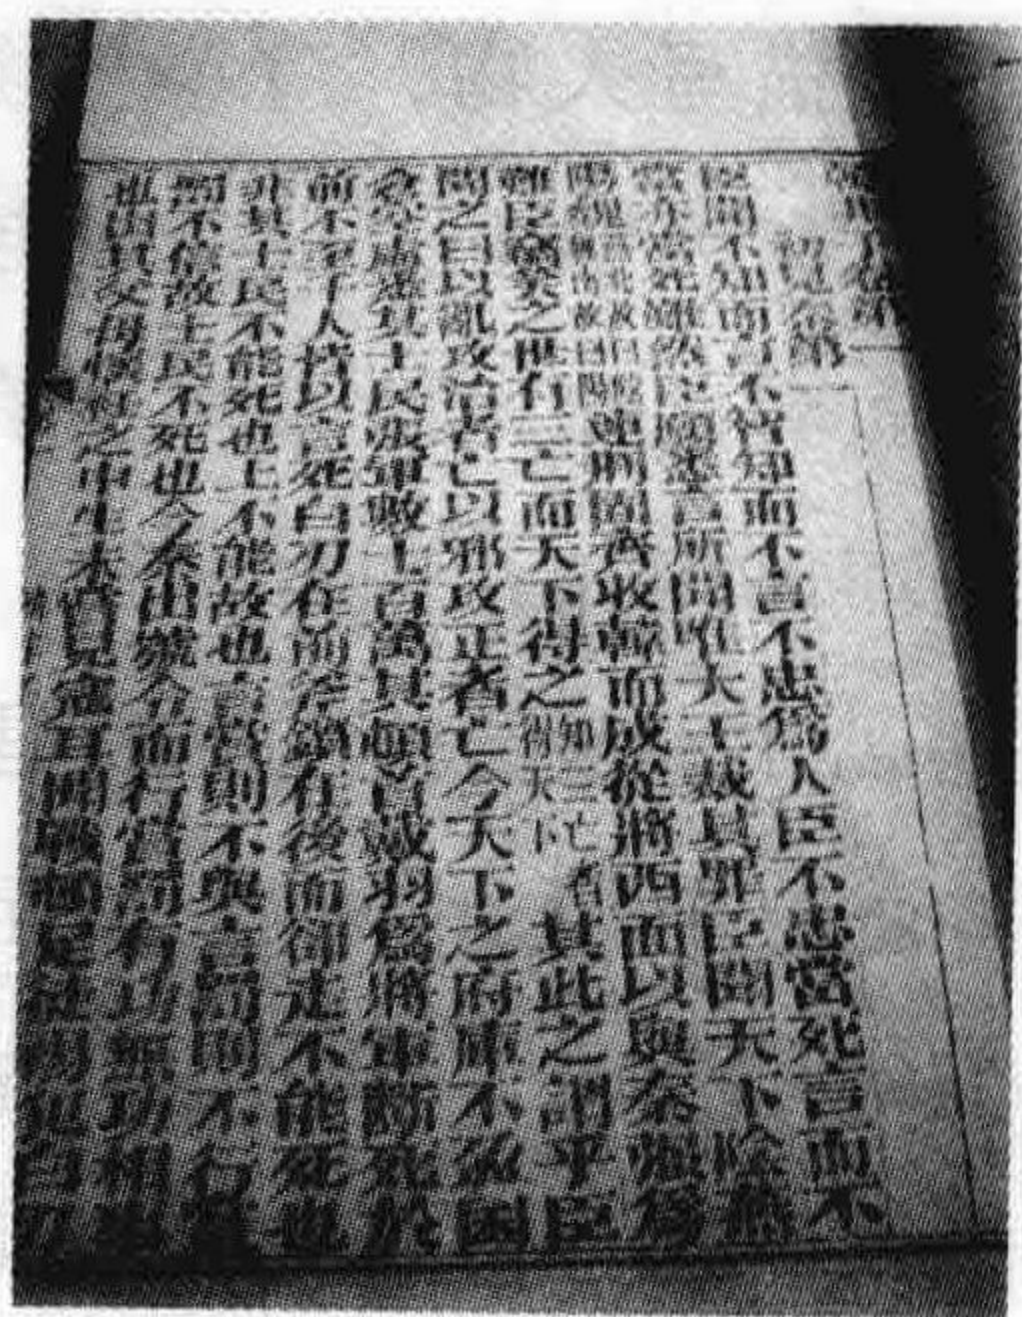 初見秦第一
臣聞不知而言不智知而不言不忠爲人臣不忠當死言而不
當亦當死雖然臣願悉言所聞唯大王裁其罪臣聞天下陰燕
陽魏連荆固齊收韓而成從將西面以與秦强爲
難臣竊笑之世有三亡而天下得之知三亡者得天下其此之謂乎臣
聞之曰以亂攻治者亡以邪攻正者亡今天下之府庫不盈囷
倉空虛悉其士民張軍數十百萬其頓首戴羽爲將軍斷死於
前不至千人皆以言死白刃在前斧鑕在後而卻走不能死也
非其士民不能死也上不能故也言賞則不與言罰則不行賞
罰不信故士民不死也今秦出號令而行賞罰有功無功相事
也出其父母懷衽之中生未嘗見寇耳聞戰頓足徒裼犯白刃